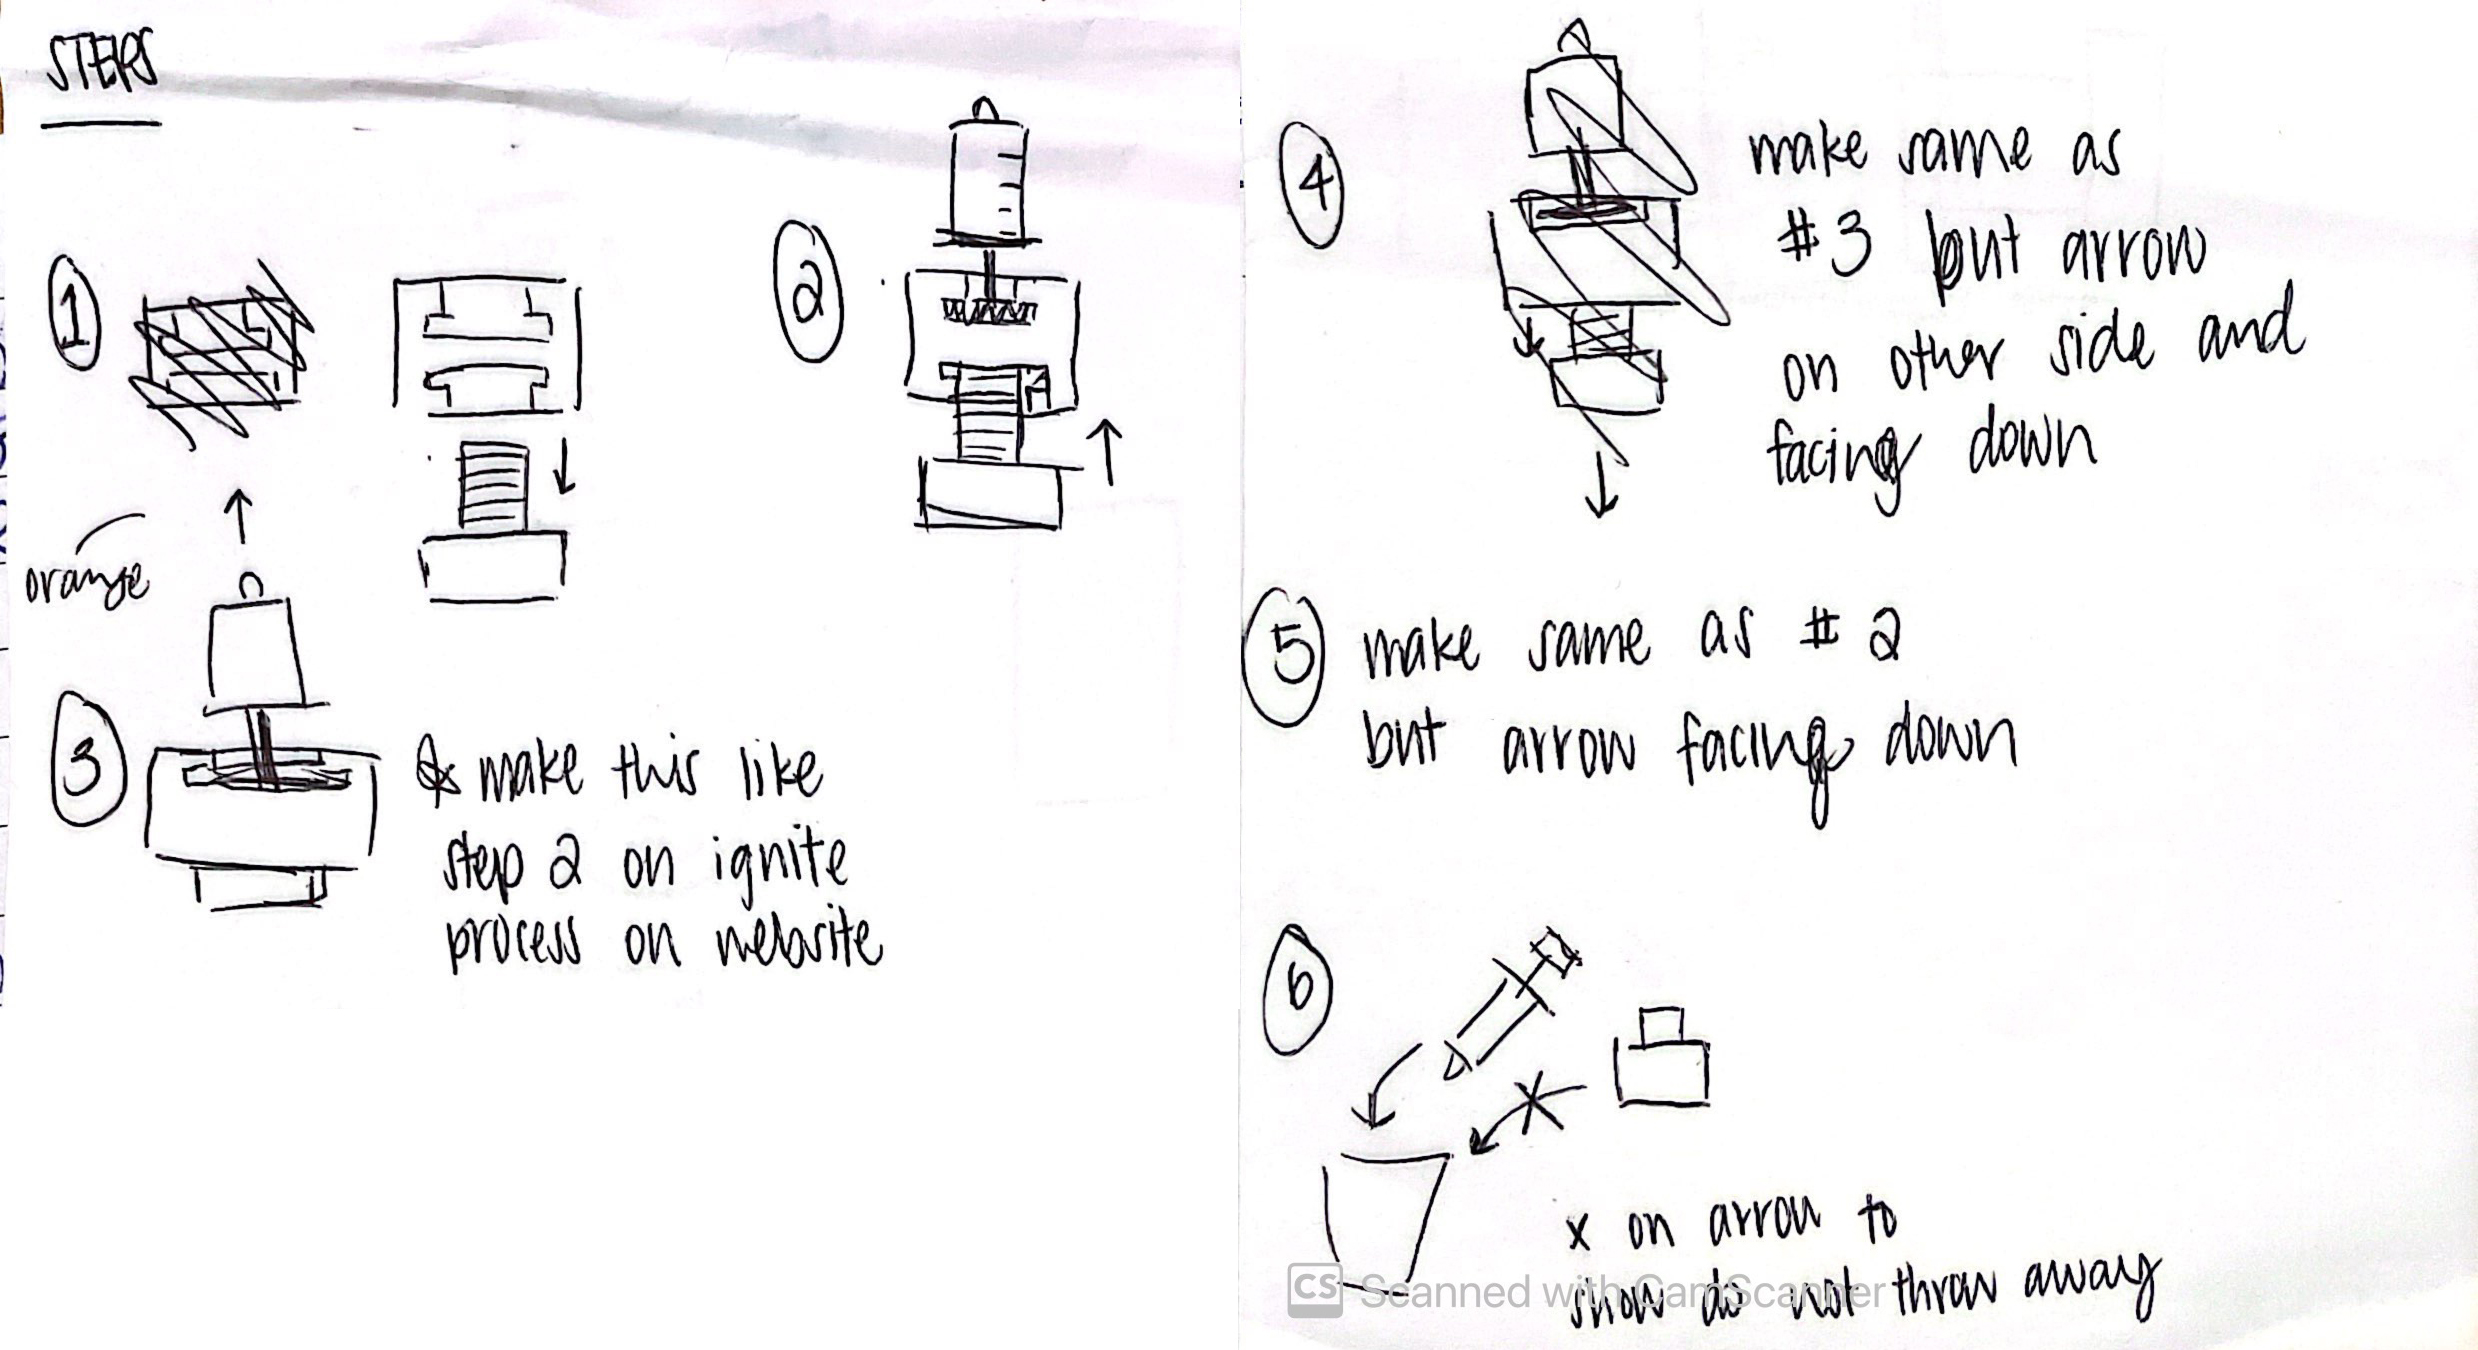 STEPS
1
2
orange
3
* make this like
step 2 on ignite
process on website
4
make same as
#3 but arrow
on other side and
facing down
5
make same as #2
but arrow facing down
6
x on arrow to
show do not throw away
CS Scanned with CamScanner